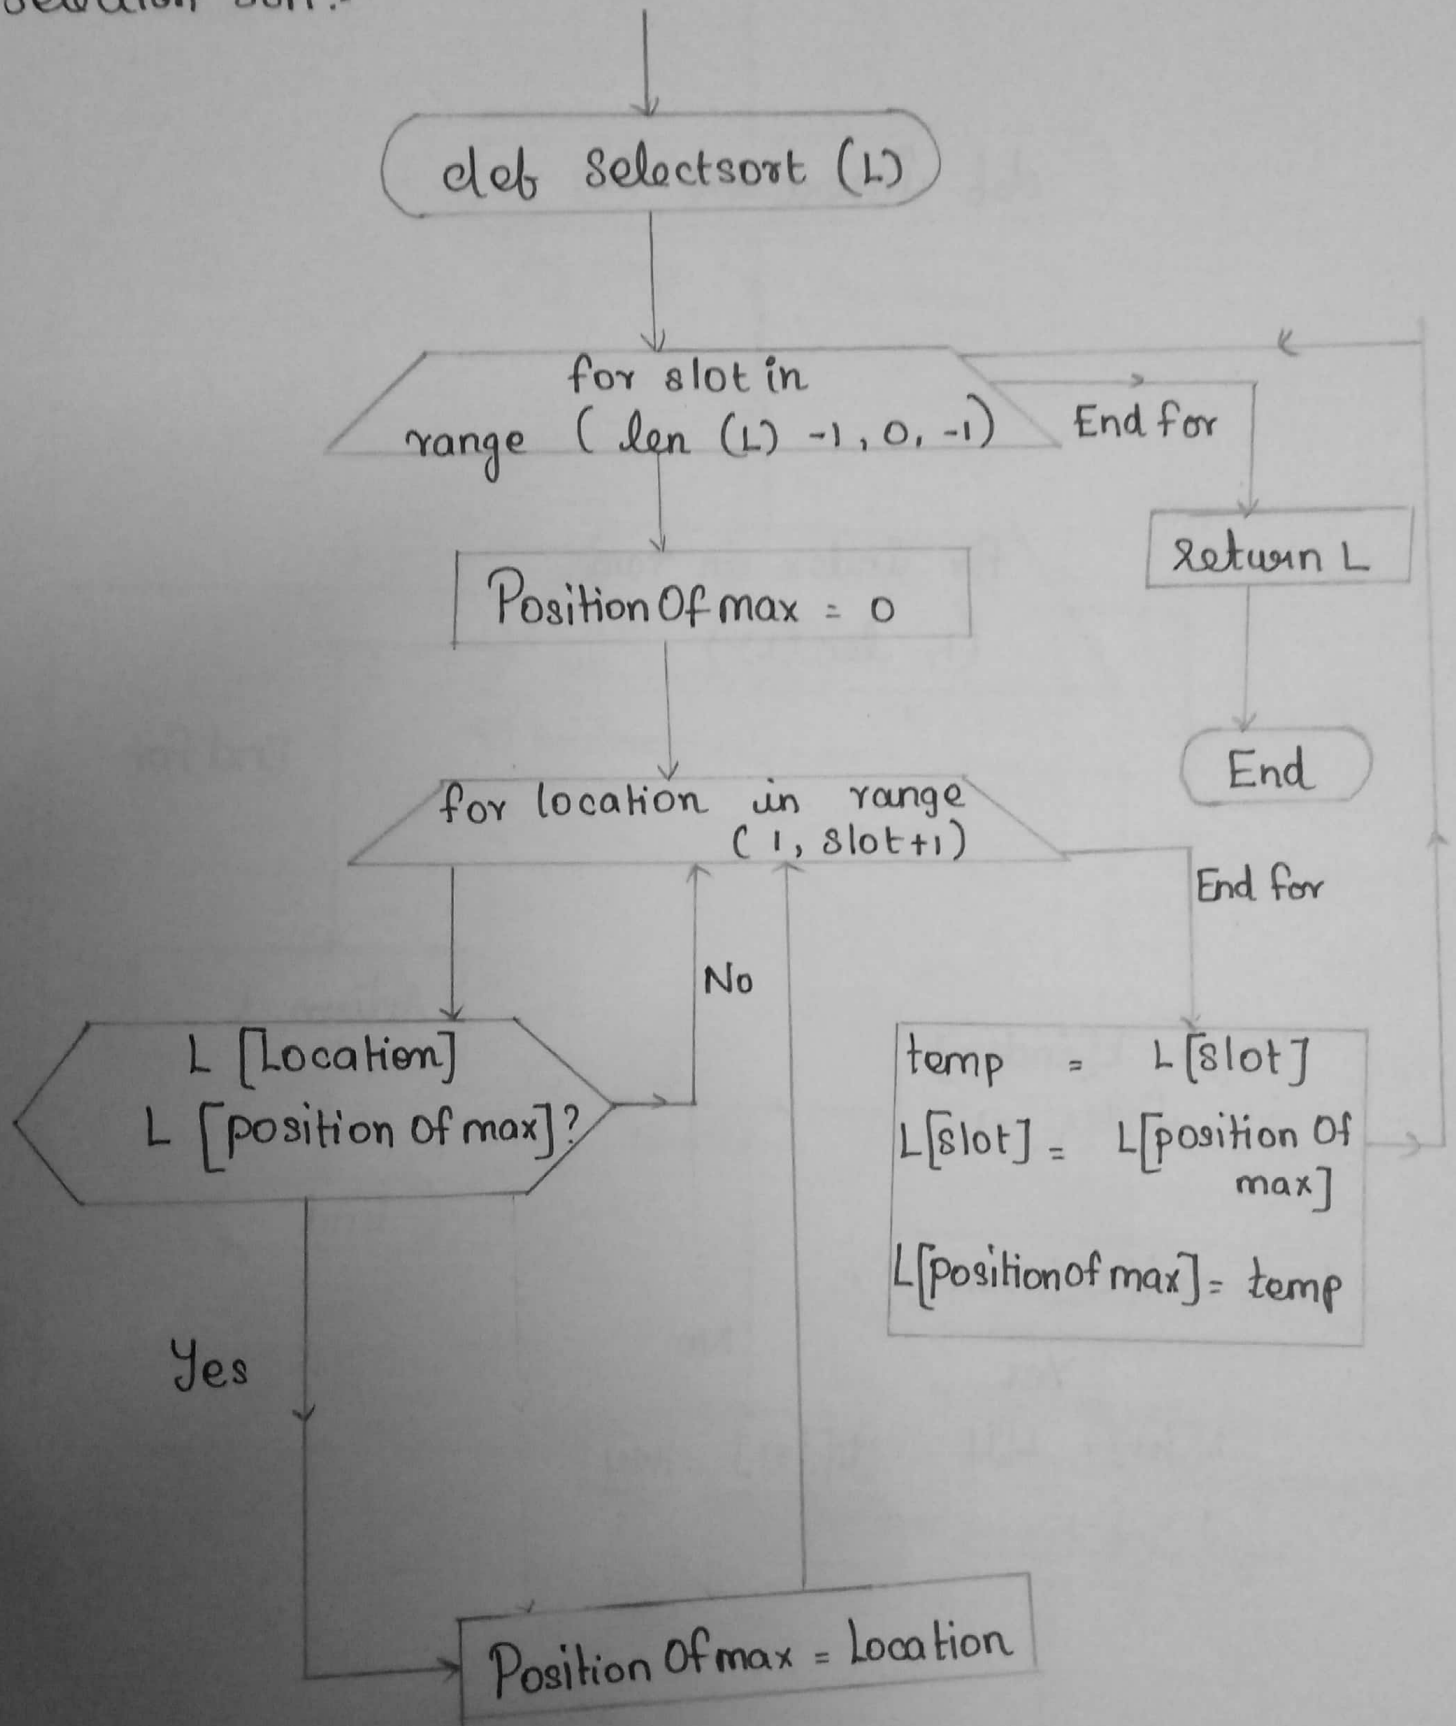 def Selectsort (L)
for slot in
range ( len (L) -1, 0, -1)
End for
return L
Position Of max = 0
End
for location in range
( 1, slot+1)
End for
No
L [Location]
L [position Of max]?
temp = L[slot]
L[slot] = L[position Of
max]
L[position of max] = temp
Yes
Position Of max = Location